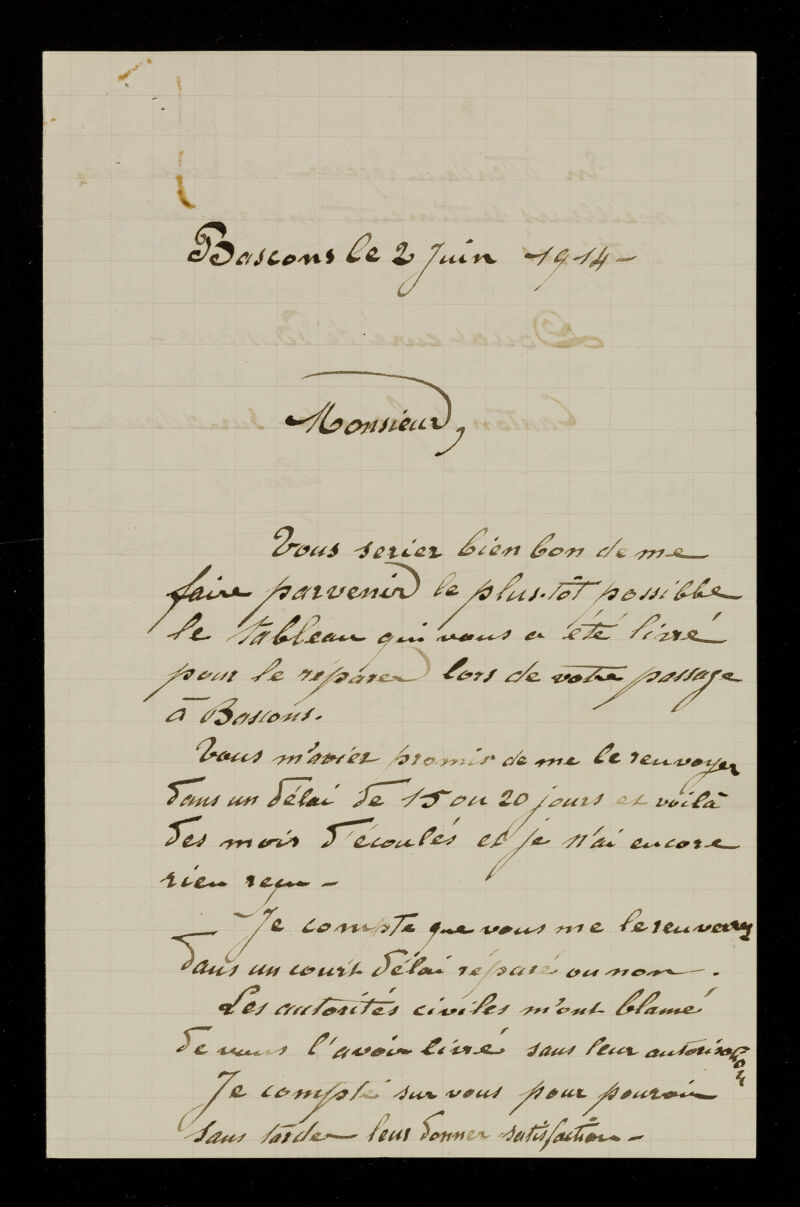 Bascons le 2 Juin 1914 -
Monsieur,
Vous seriez bien bon de me
faire parvenir le plus-tôt possibbe
le tableau qui vous a été livré
pour le réparer lors de votre passage
à Bascons.
Vous m'aviez promis de me le renvoyer
dans un délai de 15 ou 20 jours et voilà
des mois d'écoulés et je n'ai encore
rien reçu -
Je compte que vous me le renverrez
dans un court délai réparé ou non.
Les autorités civiles m'ont blamé
de vous l'avoir livré sans leur autorisation
Je compte sur vous pour pouvoir
sans tarder leur donner satisfaction -